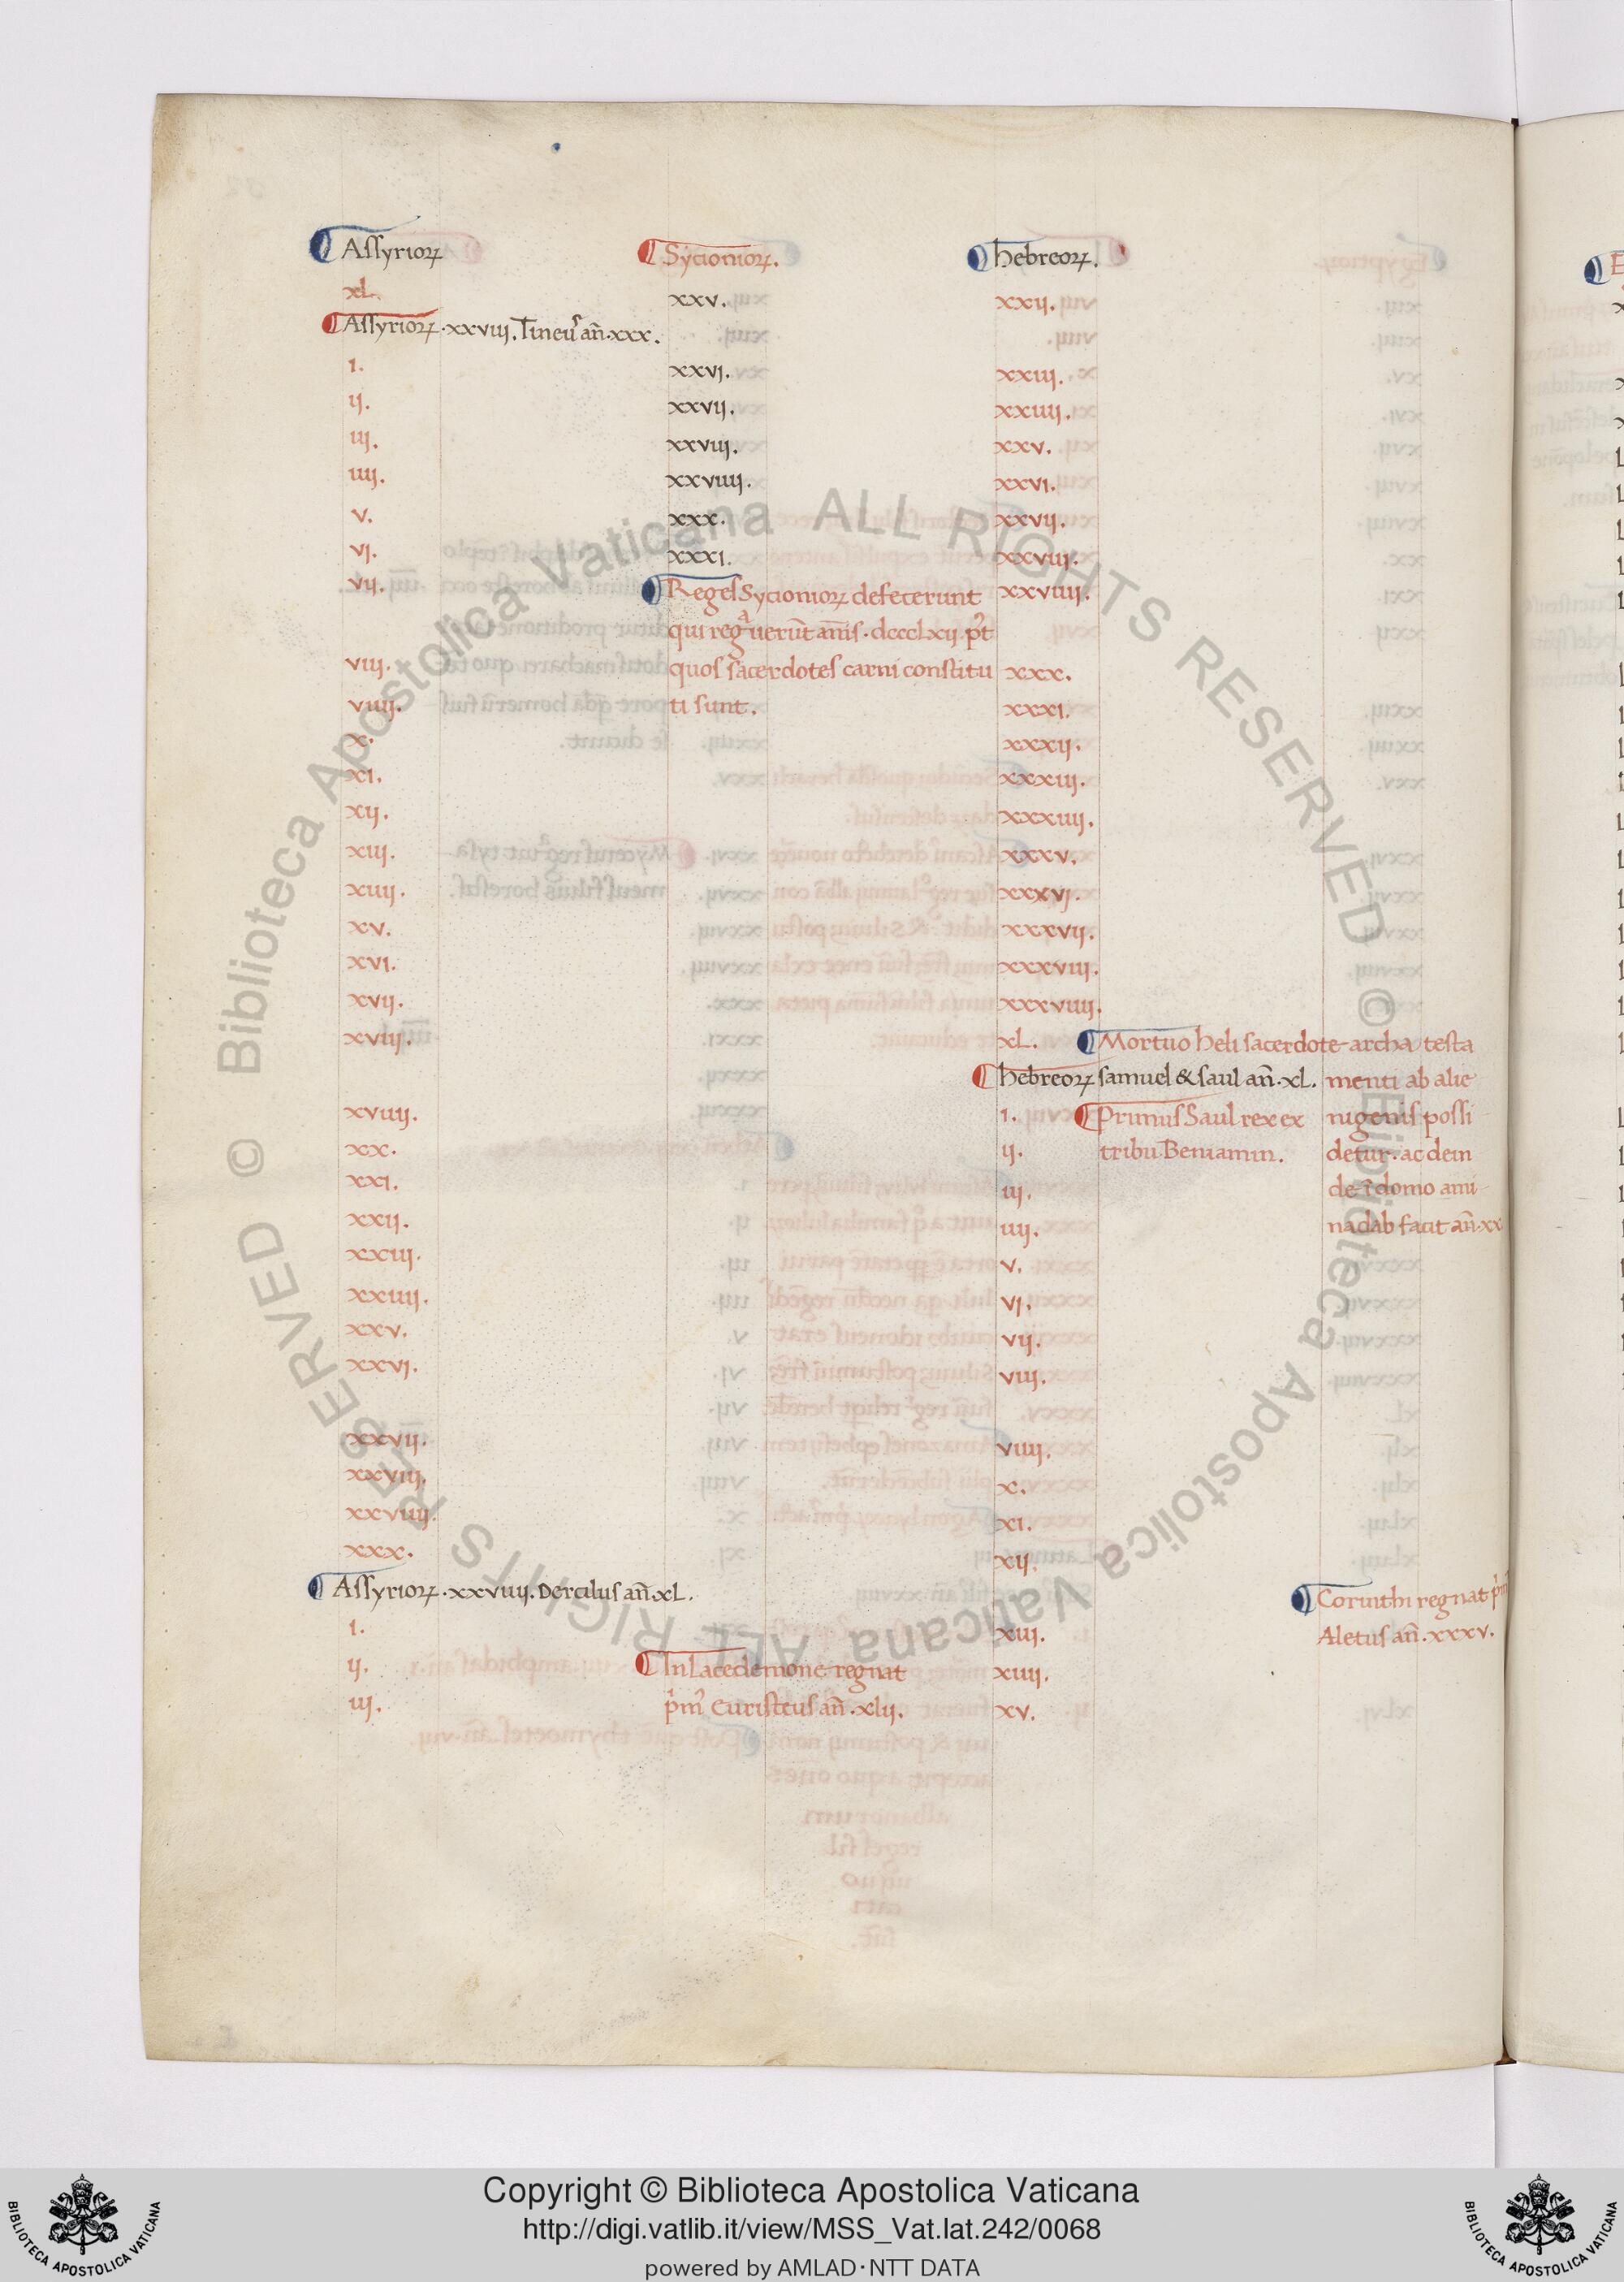 Assyrioꝝ Sycionioꝝ. hebreoꝝ.
xL. xxv. xxij.
Assyrioꝝ·xxviij. Tineus añ·xxx.
i. xxvj. xxiij.
ij. xxvij. xxiiij.
iij. xxviij. xxv.
iiij. xxviiij. xxvi.
v. xxx. xxvij.
vj. xxxi. xxviij.
vij. Reges Sycionioꝝ defecerunt xxviiij.
qui regᵃuerūt annis·dcccclxij. pꝰt
viij. quos sacerdotes carni constitu xxx.
viiij. ti sunt. xxxi.
x. xxxij.
xi. xxxiij.
xij. xxxiiij.
xiij. xxxv.
xiiij. xxxvj.
xv. xxxvij.
xvi. xxxviij.
xvij. xxxviiij.
xviij. xL. Mortuo heli sacerdote archa testa
hebreoꝝ samuel & saul añ·xL. menti ab alie
xviiij. i. Primus Saul rex ex nigenis possi
xx. ij. tribu Beniamin. detur·ac dein
xxi. iij. de ī domo ami
xxij. iiij. nadab facit añ·xx
xxiij. v.
xxiiij. vj.
xxv. vij.
xxvj. viij.
xxvij. viiij.
xxviij. x.
xxviiij. xi.
xxx. xij.
Assyrioꝝ·xxviiij. Dercilus añ·xL. Corinthi regnat pⁱm
i. xiij. Aletus añ·xxxv.
ij. In Lacedemone regnat xiiij.
iij. pⁱmꝰ Euristeus añ·xlij. xv.
© Biblioteca Apostolica Vaticana ALL RIGHTS RESERVED © Biblioteca Apostolica Vaticana ALL RIGHTS RESERVED
Copyright © Biblioteca Apostolica Vaticana
http://digi.vatlib.it/view/MSS_Vat.lat.242/0068
powered by AMLAD·NTT DATA
BIBLIOTECA APOSTOLICA VATICANA
BIBLIOTECA APOSTOLICA VATICANA